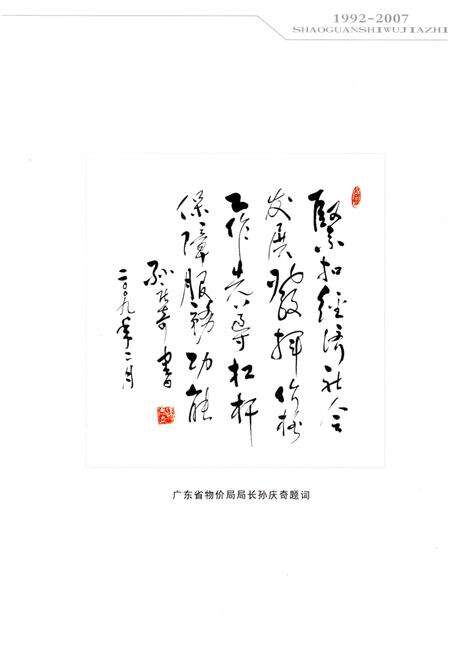 1992-2007
SHAOGUANSHIWUJIAZHI
緊扣經济社会
发展發揮价格
工作先導杠杆
保障服務功能
孙庆奇書
二〇〇九年二月
广东省物价局局长孙庆奇题词